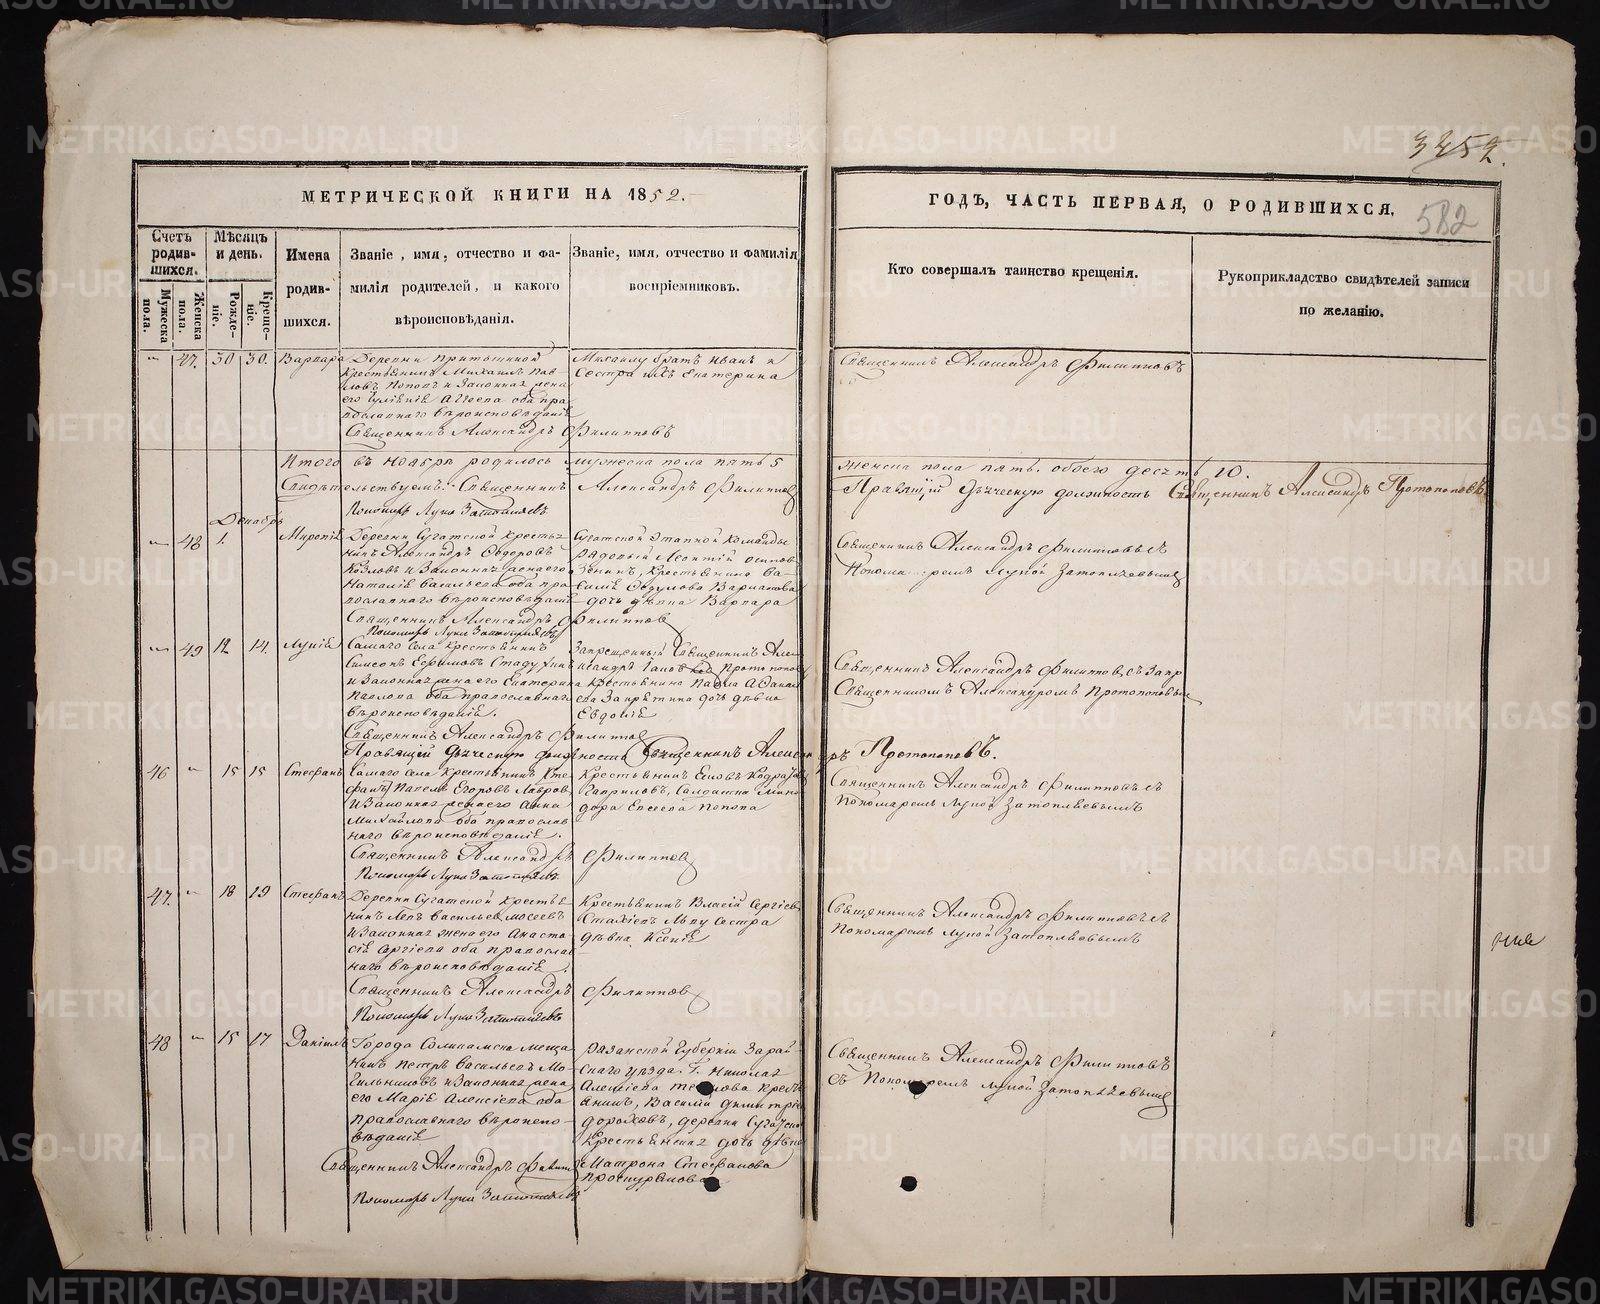 3252.
МЕТРИЧЕСКОЙ КНИГИ НА 1852.
ГОДЪ, ЧАСТЬ ПЕРВАЯ, О РОДИВШИХСЯ.
582
Счетъ родив-шихся.
Мужеска пола.
Женска пола.
Мѣсяцъ и день.
Рожде-ніе.
Креще-ніе.
Имена
родив-
шихся.
Званіе, имя, отчество и фа-
милія родителей, и какого
вѣроисповѣданія.
Званіе, имя, отчество и фамилія
воспріемниковъ.
Кто совершалъ таинство крещенія.
Рукоприкладство свидѣтелей записи
по желанію.
47. 30 30. Варвара
Деревни
Крестьянинъ Михаилъ Пав-
ловъ Поповъ и Законная жена
его Аггеева оба пра-
вославнаго вѣроисповѣданіе
Священникъ Александръ Филипповъ
Михаилу братъ Иванъ и
Сестра ихъ Екатерина
Священникъ Александръ Филипповъ
Итого въ ноябрѣ родилось мужеска пола пять 5
женска пола пять. обоего десять 10.
Свидѣтельствуемъ: Священникъ Александръ Филипповъ
Правящій Дьяческую должность Священникъ Александръ Протопоповъ
Пономарь Лука Затопляевъ
Декабрь
48 1.
Деревни Сугатской кресть-
нинъ Александръ Ѳедоровъ
Козловъ и Законная жена его
Наталіе Васильева оба пра-
вославнаго вѣроисповѣданіе
Священникъ Александръ Филипповъ
Пономарь Лука Затопляевъ
Сугатской Этапной Команды
рядовый Леонтій
Крестьянина Ва-
силіе
дочь дѣвка Варвара
Священникъ Александръ Филипповъ съ
Пономаремъ Лукой Затопляевымъ
49 12 14. Лукіе
Самаго села крестьянинъ
Симеонъ Ефимовъ Стадухинъ
и Законная жена его Екатерина
Павлова оба православнаго
вѣроисповѣданіе.
Священникъ Александръ Филипповъ
Правящій Дьяческую должность Священникъ Александръ Протопоповъ.
Запрещенный Священникъ Алек-
сандръ Протопопов
Крестьянина Павла Аѳанась
ева дочь дѣвка
Евдокіе
Священникъ Александръ Филипповъ съ Запр
Священникомъ Александромъ Протопоповым
46 15 15 Стефанъ
Самаго села крестьянинъ Сте-
фанъ Павелъ Егоровъ Лавров
и Законная жена его Анна
Михайлова оба православ
наго вѣроисповѣданіе.
Священникъ Александръ Филипповъ
Пономарь Лука Затопляевъ
Крестьянинъ
Гавриловъ, Солдатка
дора Евсеева Попова
Священникъ Александръ Филипповъ съ
Пономаремъ Лукой Затопляевымъ
47. 18 19 Стефанъ
Деревни Сугатской кресть-
нинъ Левъ Васильев Мосеевъ
и Законная жена его Анаста-
сіе Сергіева оба православ
наго вѣроисповѣданіе.
Священникъ Александръ Филипповъ
Пономарь Лука Затопляевъ
Крестьянинъ Власій Сергіевъ
Льву Сестра
дѣвка Ксеніе
Священникъ Александръ Филипповъ съ
Пономаремъ Лукой Затопляевымъ
48 15 17 Даніилъ
Города Соликамска мѣща
нинъ Петръ Васильевъ Мо-
гильниковъ и Законная жена
его Маріе Алексіева оба
православнаго вѣроиспо-
вѣданіе
Священникъ Александръ Филипповъ
Пономарь Лука Затопляевъ
Рязанской Губерніи Зарай-
скаго уѣзда Г. Николая
Алексіева крест
янинъ, Василій Димитріе
Дороховъ, деревни Сугатской
Крестьянская дочь дѣвка
Матрона Стефанова
Проскурякова
Священникъ Александръ Филипповъ
съ Пономаремъ Лукой Затопляевымъ
METRIKI.GASO-URAL.RU